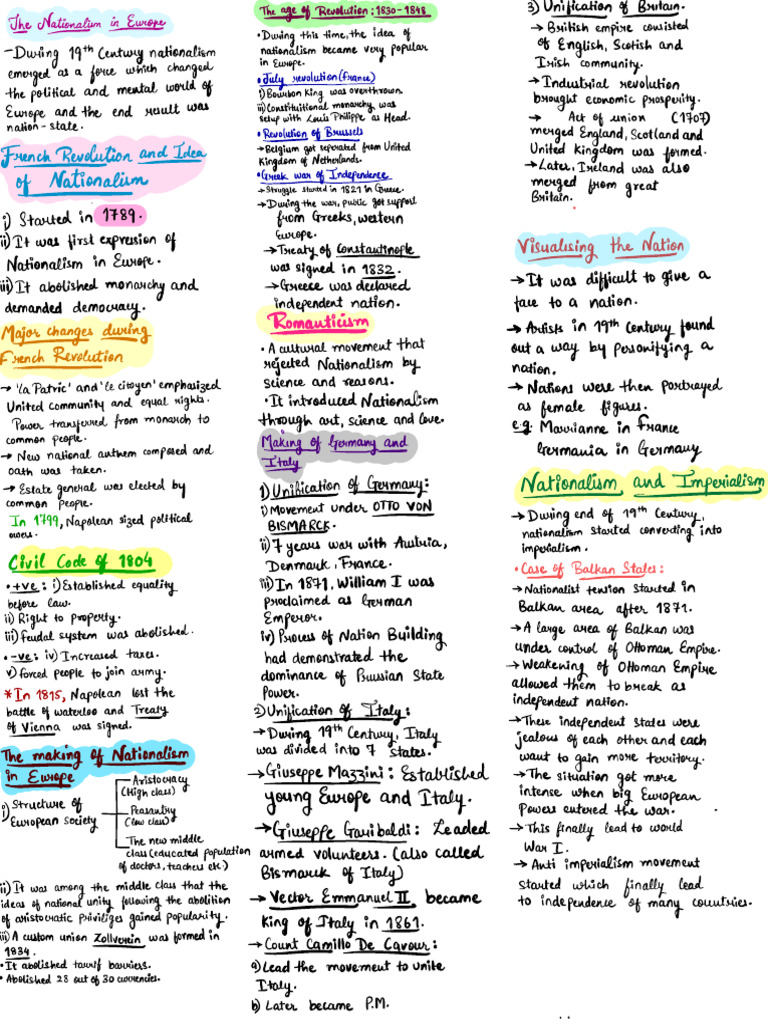 The Nationalism in Europe
- During 19th Century nationalism
emerged as a force which changed
the political and mental world of
Europe and the end result was
nation-state.
French Revolution and Idea
of Nationalism
i) Started in 1789.
ii) It was first expression of
Nationalism in Europe.
iii) It abolished monarchy and
demanded democracy.
Major changes during
French Revolution
→ 'la Patric' and 'le citoyen' emphasized
United Community and equal rights.
Power transferred from monarch to
common people.
→ New national anthem composed and
oath was taken.
→ Estate general was elected by
common people.
In 1799, Napolean sized political
owers.
Civil Code of 1804
• +ve: i) Established equality
before law.
ii) Right to property.
iii) feudal system was abolished.
• -ve: iv) Increased taxes.
v) forced people to join army.
* In 1815, Napolean lost the
battle of waterloo and Treaty
of Vienna was signed.
The making of Nationalism
in Europe
i) Structure of
European society
Aristocracy
(High class)
Peasantry
(low class)
The new middle
class (educated population
of doctors, teachers etc.)
ii) It was among the middle class that the
ideas of national unity following the abolition
of aristocratic priviliges gained popularity.
iii) A custom union Zollverein was formed in
1834.
• It abolished tarrif barriers.
• Abolished 28 out of 30 currencies.
The age of Revolution: 1830-1848
• During this time, the idea of
nationalism became very popular
in Europe.
• July revolution (france)
i) Bourbon King was overthrown.
ii) Constitutional monarchy was
setup with Louis Philippe as Head.
• Revolution of Brussels
→ Belgium got seperated from United
Kingdom of Netherlands.
• Greek war of Independence
→ Struggle started in 1821 in Greece.
→ During the war, public got support
from Greeks, western
Europe.
→ Treaty of Constautinople
was signed in 1832.
→ Greece was declared
independent nation.
Romanticism
• A cultural movement that
rejected Nationalism by
science and reasons.
• It introduced Nationalism
through art, science and love.
Making of Germany and
Italy
1) Unification of Germany:
i) Movement under OTTO VON
BISMARCK.
ii) 7 years war with Autria,
Denmark, France.
iii) In 1871, William I was
proclaimed as German
Emperor.
iv) Process of Nation Building
had demonstrated the
dominance of Prussian State
Power.
2) Unification of Italy:
→ During 19th Century, Italy
was divided into 7 states.
→ Giuseppe Mazzini: Established
young Europe and Italy.
→ Giuseppe Garibaldi: Leaded
armed volunteers. (also called
Bismarck of Italy)
→ Vector Emmanuel II became
King of Italy in 1861.
→ Count Camillo De Cavour:
a) Lead the movement to unite
Italy.
b) Later became P.M.
3) Unification of Britain.
→ British empire consisted
of English, Scotish and
Irish community.
→ Industrial revolution
brought economic prosperity.
→ Act of union (1707)
merged England, Scotland and
United kingdom was formed.
→ Later, Ireland was also
merged from great
Britain.
Visualising the Nation
→ It was difficult to give a
face to a nation.
→ Artists in 19th Century found
out a way by personifying a
nation.
→ Nations were then portrayed
as female figures.
e.g: Marrianne in france
Germania in Germany
Nationalism and Imperialism
→ During end of 19th Century,
nationalism started converting into
imperialism.
• Case of Balkan States:
→ Nationalist tension started in
Balkan area after 1871.
→ A large area of Balkan was
under control of Ottoman Empire.
→ Weakening of Ottoman Empire
allowed them to break as
independent nation.
→ These independent states were
jealous of each other and each
want to gain more territory.
→ The situation got more
intense when big European
Powers entered the war.
→ This finally lead to world
War I.
→ Anti imperialism movement
started which finally lead
to independence of many countries.